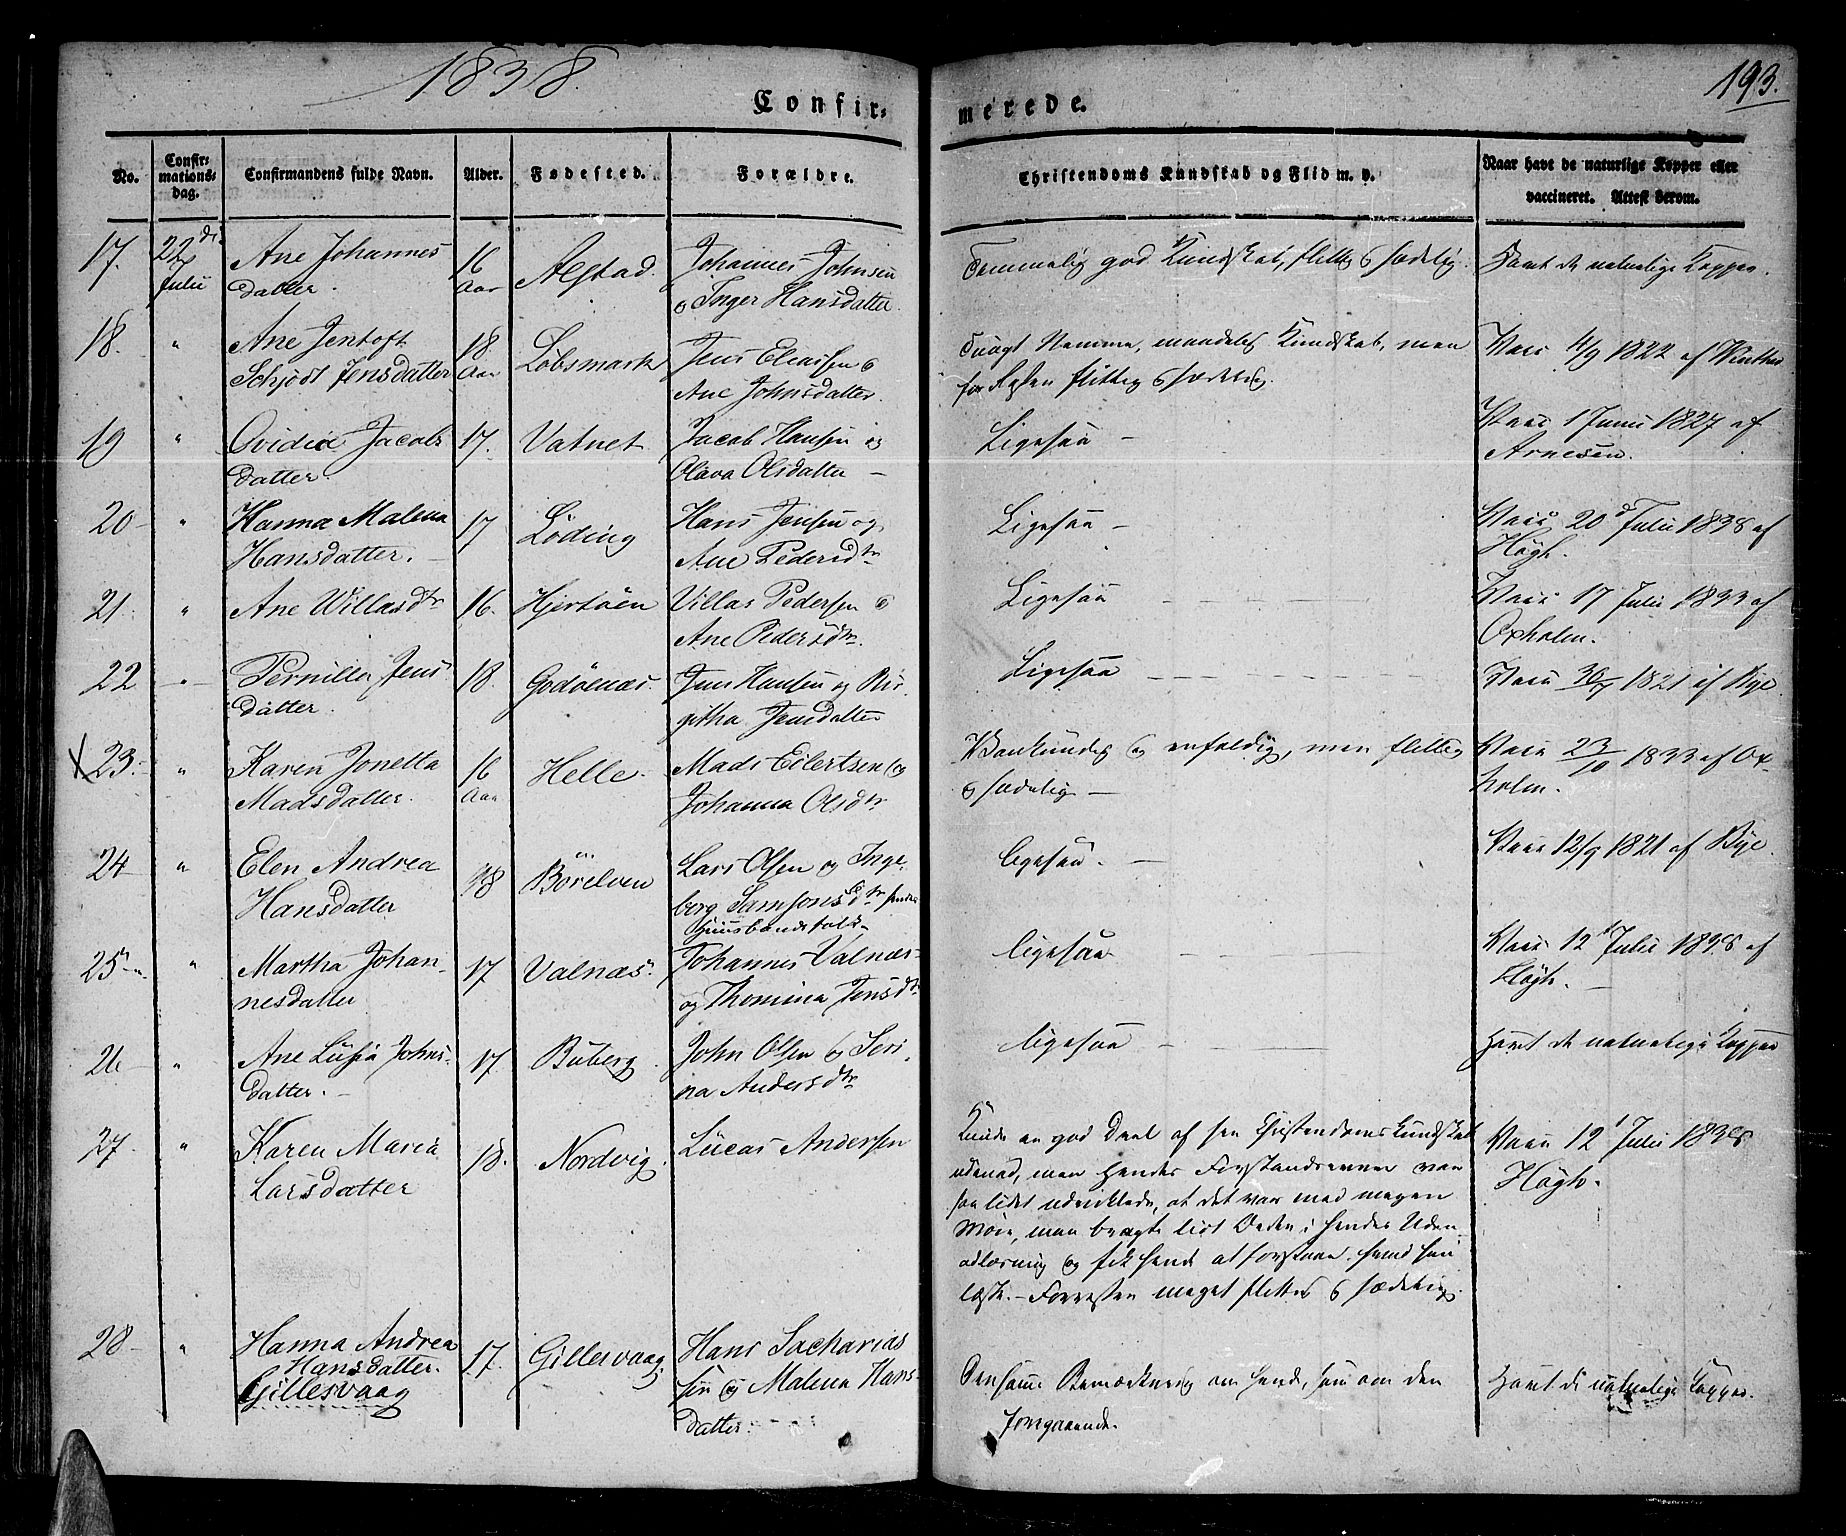 1838.
193.
Confir-
merede.
No.
Confir-
mations-
dag.
Confirmandens fulde Navn.
Alder.
Fødested.
Forældre.
Christendoms Kundskab og Flid m. v.
Naar havt de naturlige Kopper eller
vaccineret. Attest derom.
17. 22de Ane Johannes 16 Alstad. Johannes Johnsen Temmelig god Kundskab, flittig & sædelig. Havt de naturlige Kopper.
Julii datter. Aar & Inger Hansdatter.
18. " Ane Jentoft 18. Løbsmark Jens Eliassen & Svagt Nemme, maadelig Kundskab, men Vacc. 4/9 1822 af
Schjødt Jensdatter Aar Ane Johnsdatter. for Resten flittig & sædelig.
19 " Ovidia Jacobs 17. Vatnet Jacob Hansen og Ligesaa - Vacc. 1 Junii 1827 af
datter. Olava Olsdatter - Arnesen.
20 - " Hanna Malena 17 Løding Hans Jensen og Ligesaa - Vacc. 20 Julii 1838 af
Hansdatter. - Ane Pedersdtr Høgh.
21. " Ane Willasdtr 16. Hjertøen Villas Pedersen & Ligesaa Vacc. 17 Julii 1833 af
Ane Pedersdtr. Oxholm.
22 " Pernille Jens 18. Godøenæs. Jens Hansen og Bir- Ligesaa Vacc. 1821 af Bye.
datter. githa Jensdatter
X 23. " Karen Jonetta 16 Helle. Mads Eilertsen og Vankundig & enfoldig, men flittig Vacc. 23/10 1833 af Ox-
Madsdatter. Aar Johanna Olsdtr & sædelig - holm.
24 " Elen Andrea 18 Børelven Lars Olsen og Inge- ligesaa. - Vacc. 12/9 1821 af Bye.
Hansdatter berg Samsonsdtr
Huusbondsfolk
25 " Martha Johan- 17 Valnæs. Johannes Valnæs ligesaa Vacc. 12 Julii 1838 af
nesdatter og Thomina Jensdtr Høgh. -
26 - " Ane Lusia Johns- 17 Buberg. John Olsen & Seri- ligesaa Havt de naturlige Kopper
datter. - na Andersdtr
27. " Karen Maria 18. Nordvig. Lucas Andersen Kunde en god Deel af sin Christendomskundskab Vacc 12 Julii 1838
Larsdatter udenad, men hendes Forstandsevner var Høgh.
saa lidet udviklede, at det var med megen
Møie, man bragte lidt Orden i hendes Uden-
adlæsning og fik hende at forstaae hvad hun
læste. - Forresten meget flittig & sædelig.
28 - " Hanna Andrea 17. Gillesvaag Hans Sacharias Den samme Bemærkning om hende, som om den Havt de naturlige Kopper.
Hansdatter. sen og Malena Hans- foregaaende.
Gillesvaag datter.